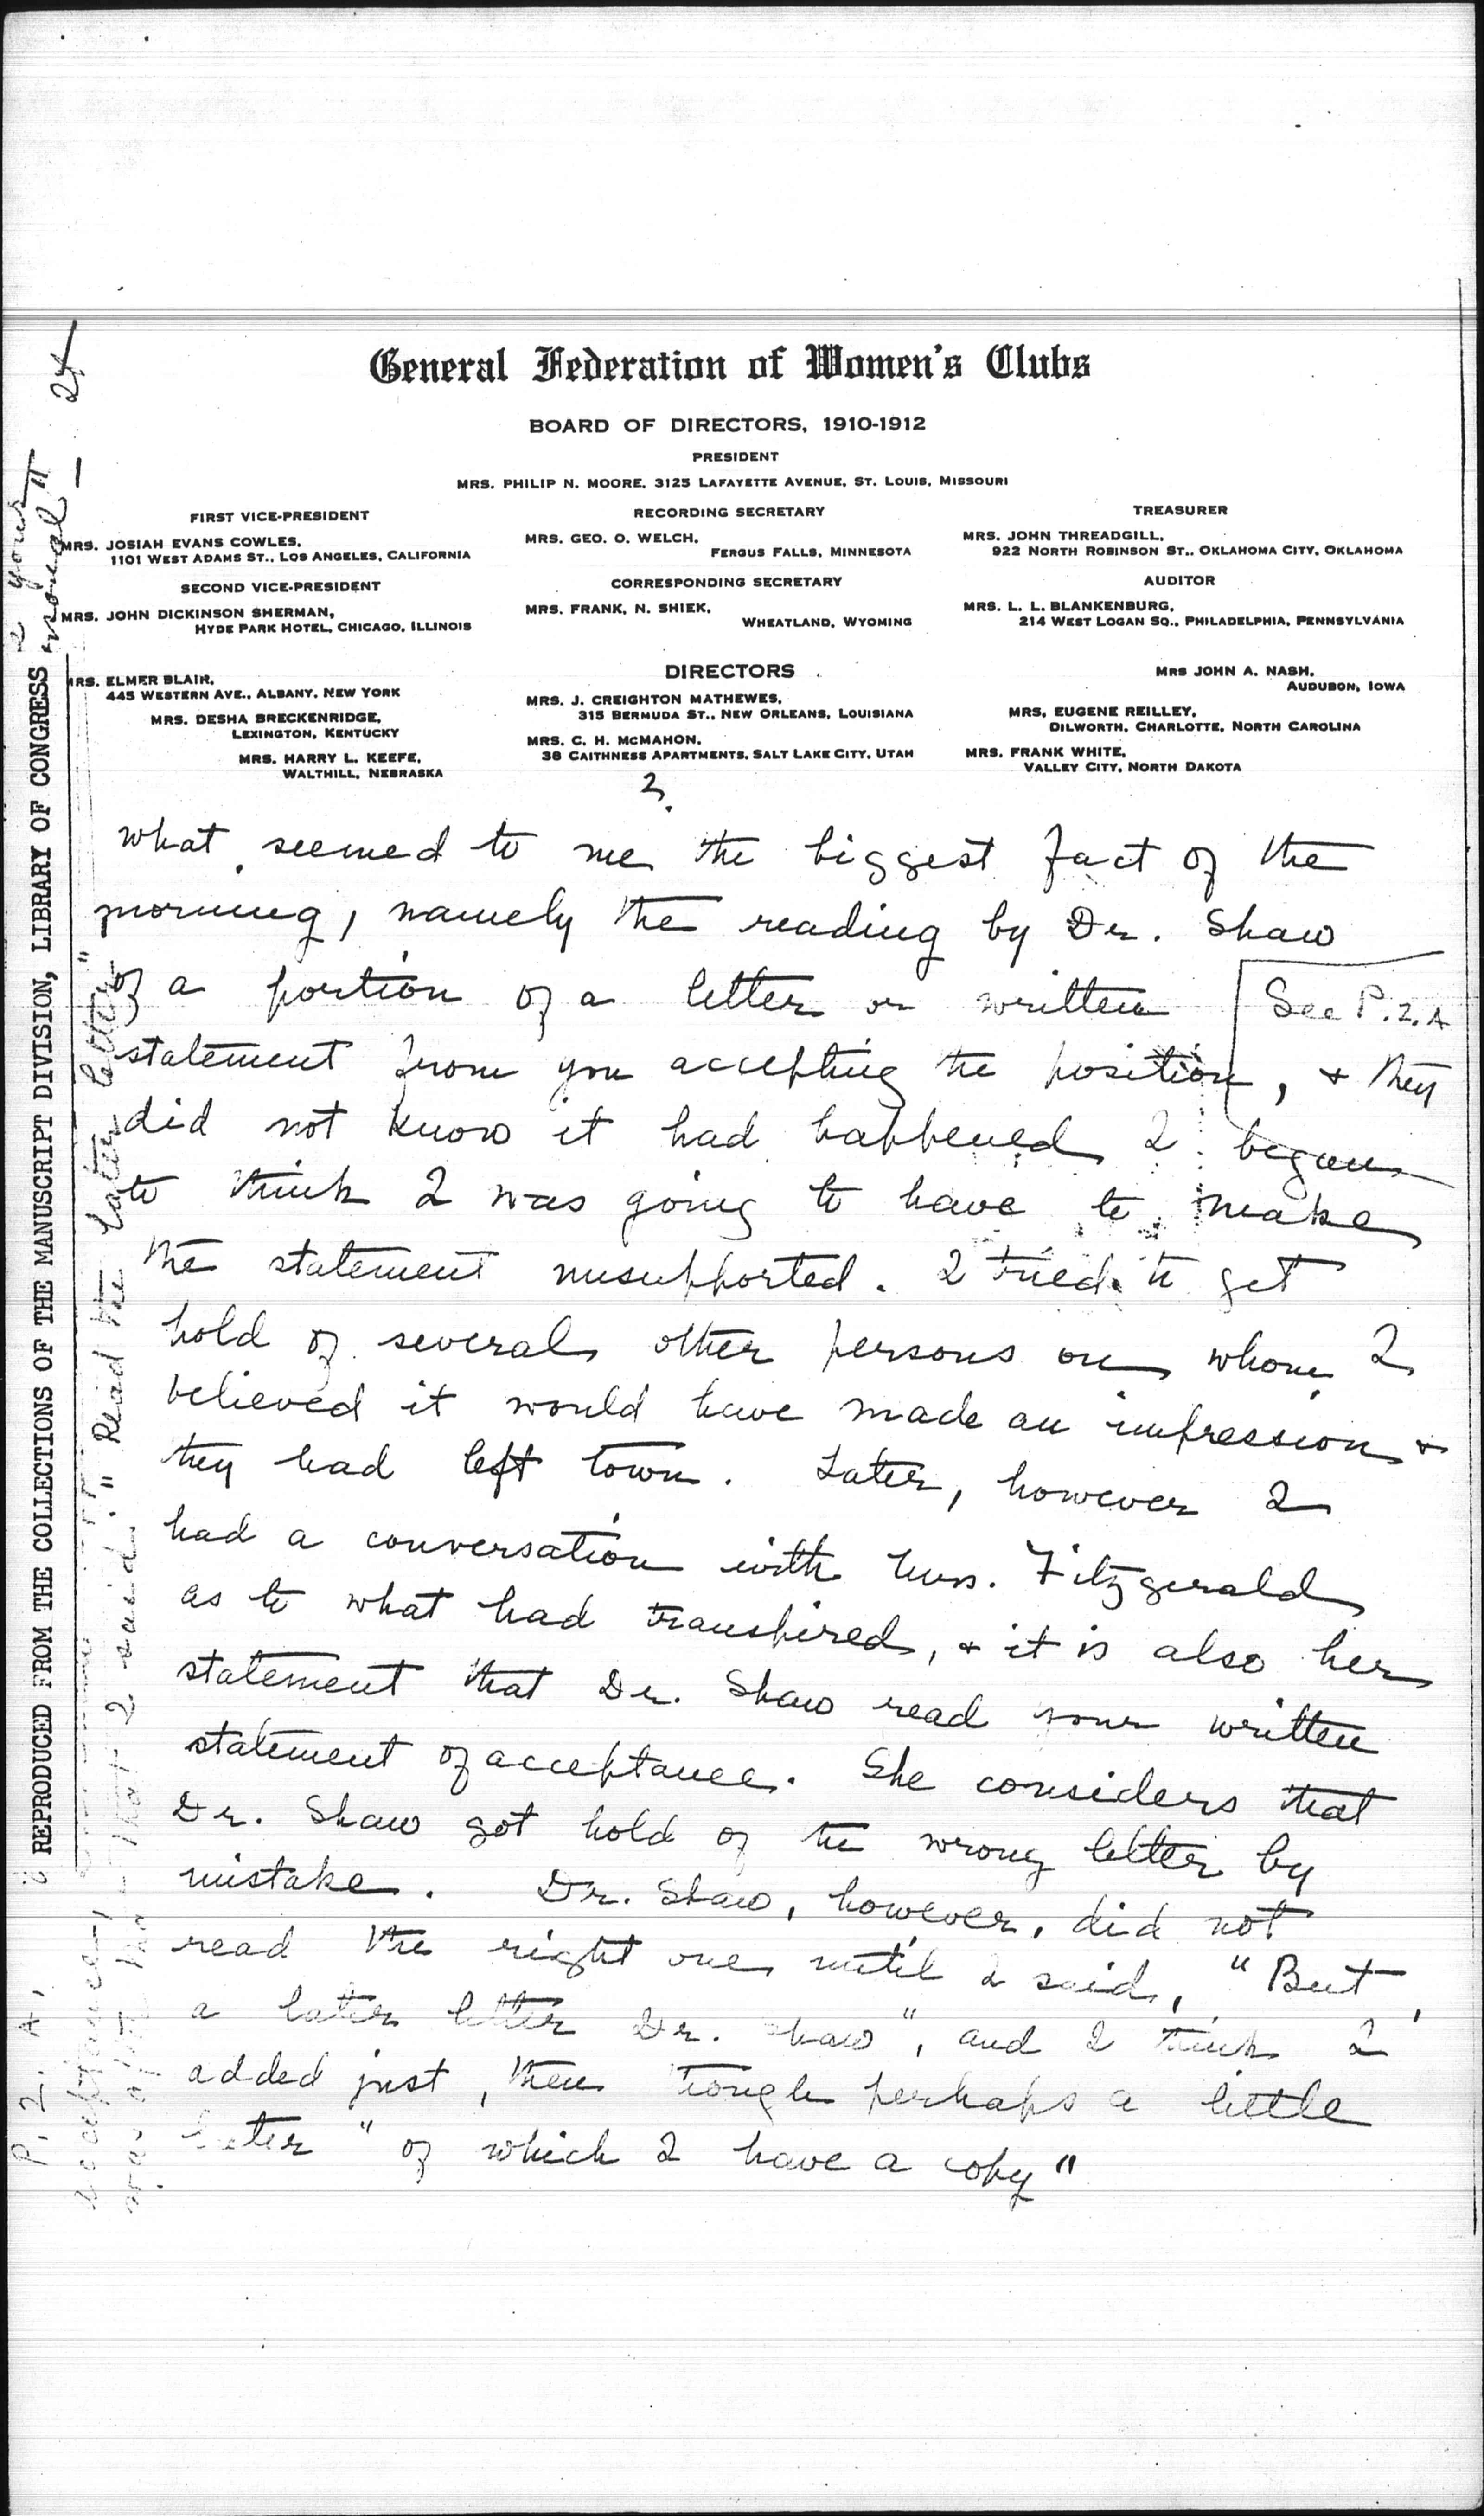 General Federation of Women's Clubs
BOARD OF DIRECTORS, 1910-1912
PRESIDENT
MRS. PHILIP N. MOORE, 3125 LAFAYETTE AVENUE, ST. LOUIS, MISSOURI
FIRST VICE-PRESIDENT
MRS. JOSIAH EVANS COWLES,
1101 WEST ADAMS ST., LOS ANGELES, CALIFORNIA
SECOND VICE-PRESIDENT
MRS. JOHN DICKINSON SHERMAN,
HYDE PARK HOTEL, CHICAGO, ILLINOIS
RECORDING SECRETARY
MRS. GEO. O. WELCH,
FERGUS FALLS, MINNESOTA
CORRESPONDING SECRETARY
MRS. FRANK. N. SHIEK,
WHEATLAND, WYOMING
TREASURER
MRS. JOHN THREADGILL,
922 NORTH ROBINSON ST., OKLAHOMA CITY, OKLAHOMA
AUDITOR
MRS. L. L. BLANKENBURG,
214 WEST LOGAN SQ., PHILADELPHIA, PENNSYLVANIA
DIRECTORS
MRS. ELMER BLAIR,
445 WESTERN AVE., ALBANY, NEW YORK
MRS. DESHA BRECKENRIDGE,
LEXINGTON, KENTUCKY
MRS. HARRY L. KEEFE,
WALTHILL, NEBRASKA
MRS. J. CREIGHTON MATHEWES,
315 BERMUDA ST., NEW ORLEANS, LOUISIANA
MRS. C. H. McMAHON,
38 CAITHNESS APARTMENTS, SALT LAKE CITY, UTAH
MRS JOHN A. NASH,
AUDUBON, IOWA
MRS. EUGENE REILLEY,
DILWORTH, CHARLOTTE, NORTH CAROLINA
MRS. FRANK WHITE,
VALLEY CITY, NORTH DAKOTA
2.
what seemed to me the biggest fact of the
morning, namely the reading by Dr. Shaw
of a portion of a letter or written
See P. 2. A
statement from you accepting the position, + they
did not know it had happened I began
to think I was going to have to make
the statement unsupported. I tried to get
hold of several other persons on whom I
believed it would have made an impression +
they had left town. Later, however I
had a conversation with Mrs. Fitzgerald
as to what had transpired, + it is also her
statement that Dr. Shaw read your written
statement of acceptance. She considers that
Dr. Shaw got hold of the wrong letter by
mistake. Dr. Shaw, however, did not
read the right one until I said, "But,
a later letter Dr. Shaw", and I think I
added just then though perhaps a little
later "of which I have a copy"
REPRODUCED FROM THE COLLECTIONS OF THE MANUSCRIPT DIVISION, LIBRARY OF CONGRESS
P. 2. A.
acceptance
that I said. "Read the later letter"
your
24